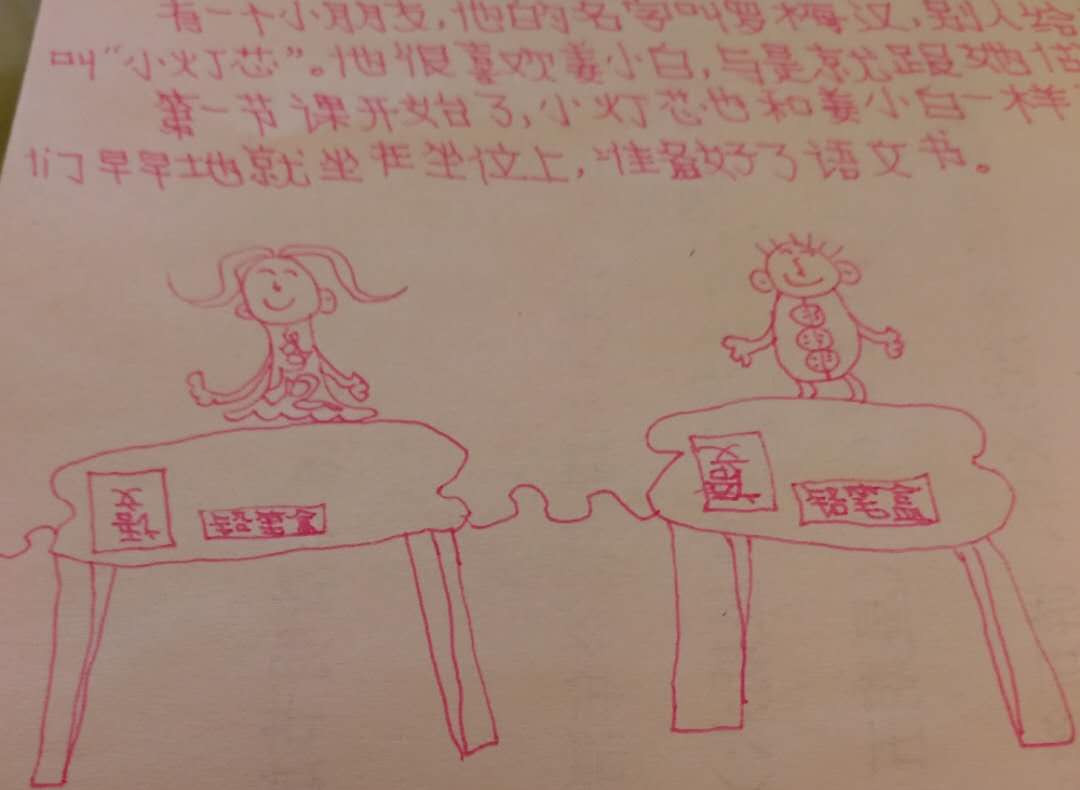 有一个小朋友,他的名字叫罗梅汉,别人给
叫“小灯芯”。他很喜欢姜小白,与是就跟她
第一节课开始了,小灯芯也和姜小白一样
们早早地就坐在坐位上,准备好了语文书。
语文
铅笔盒
语文
铅笔盒